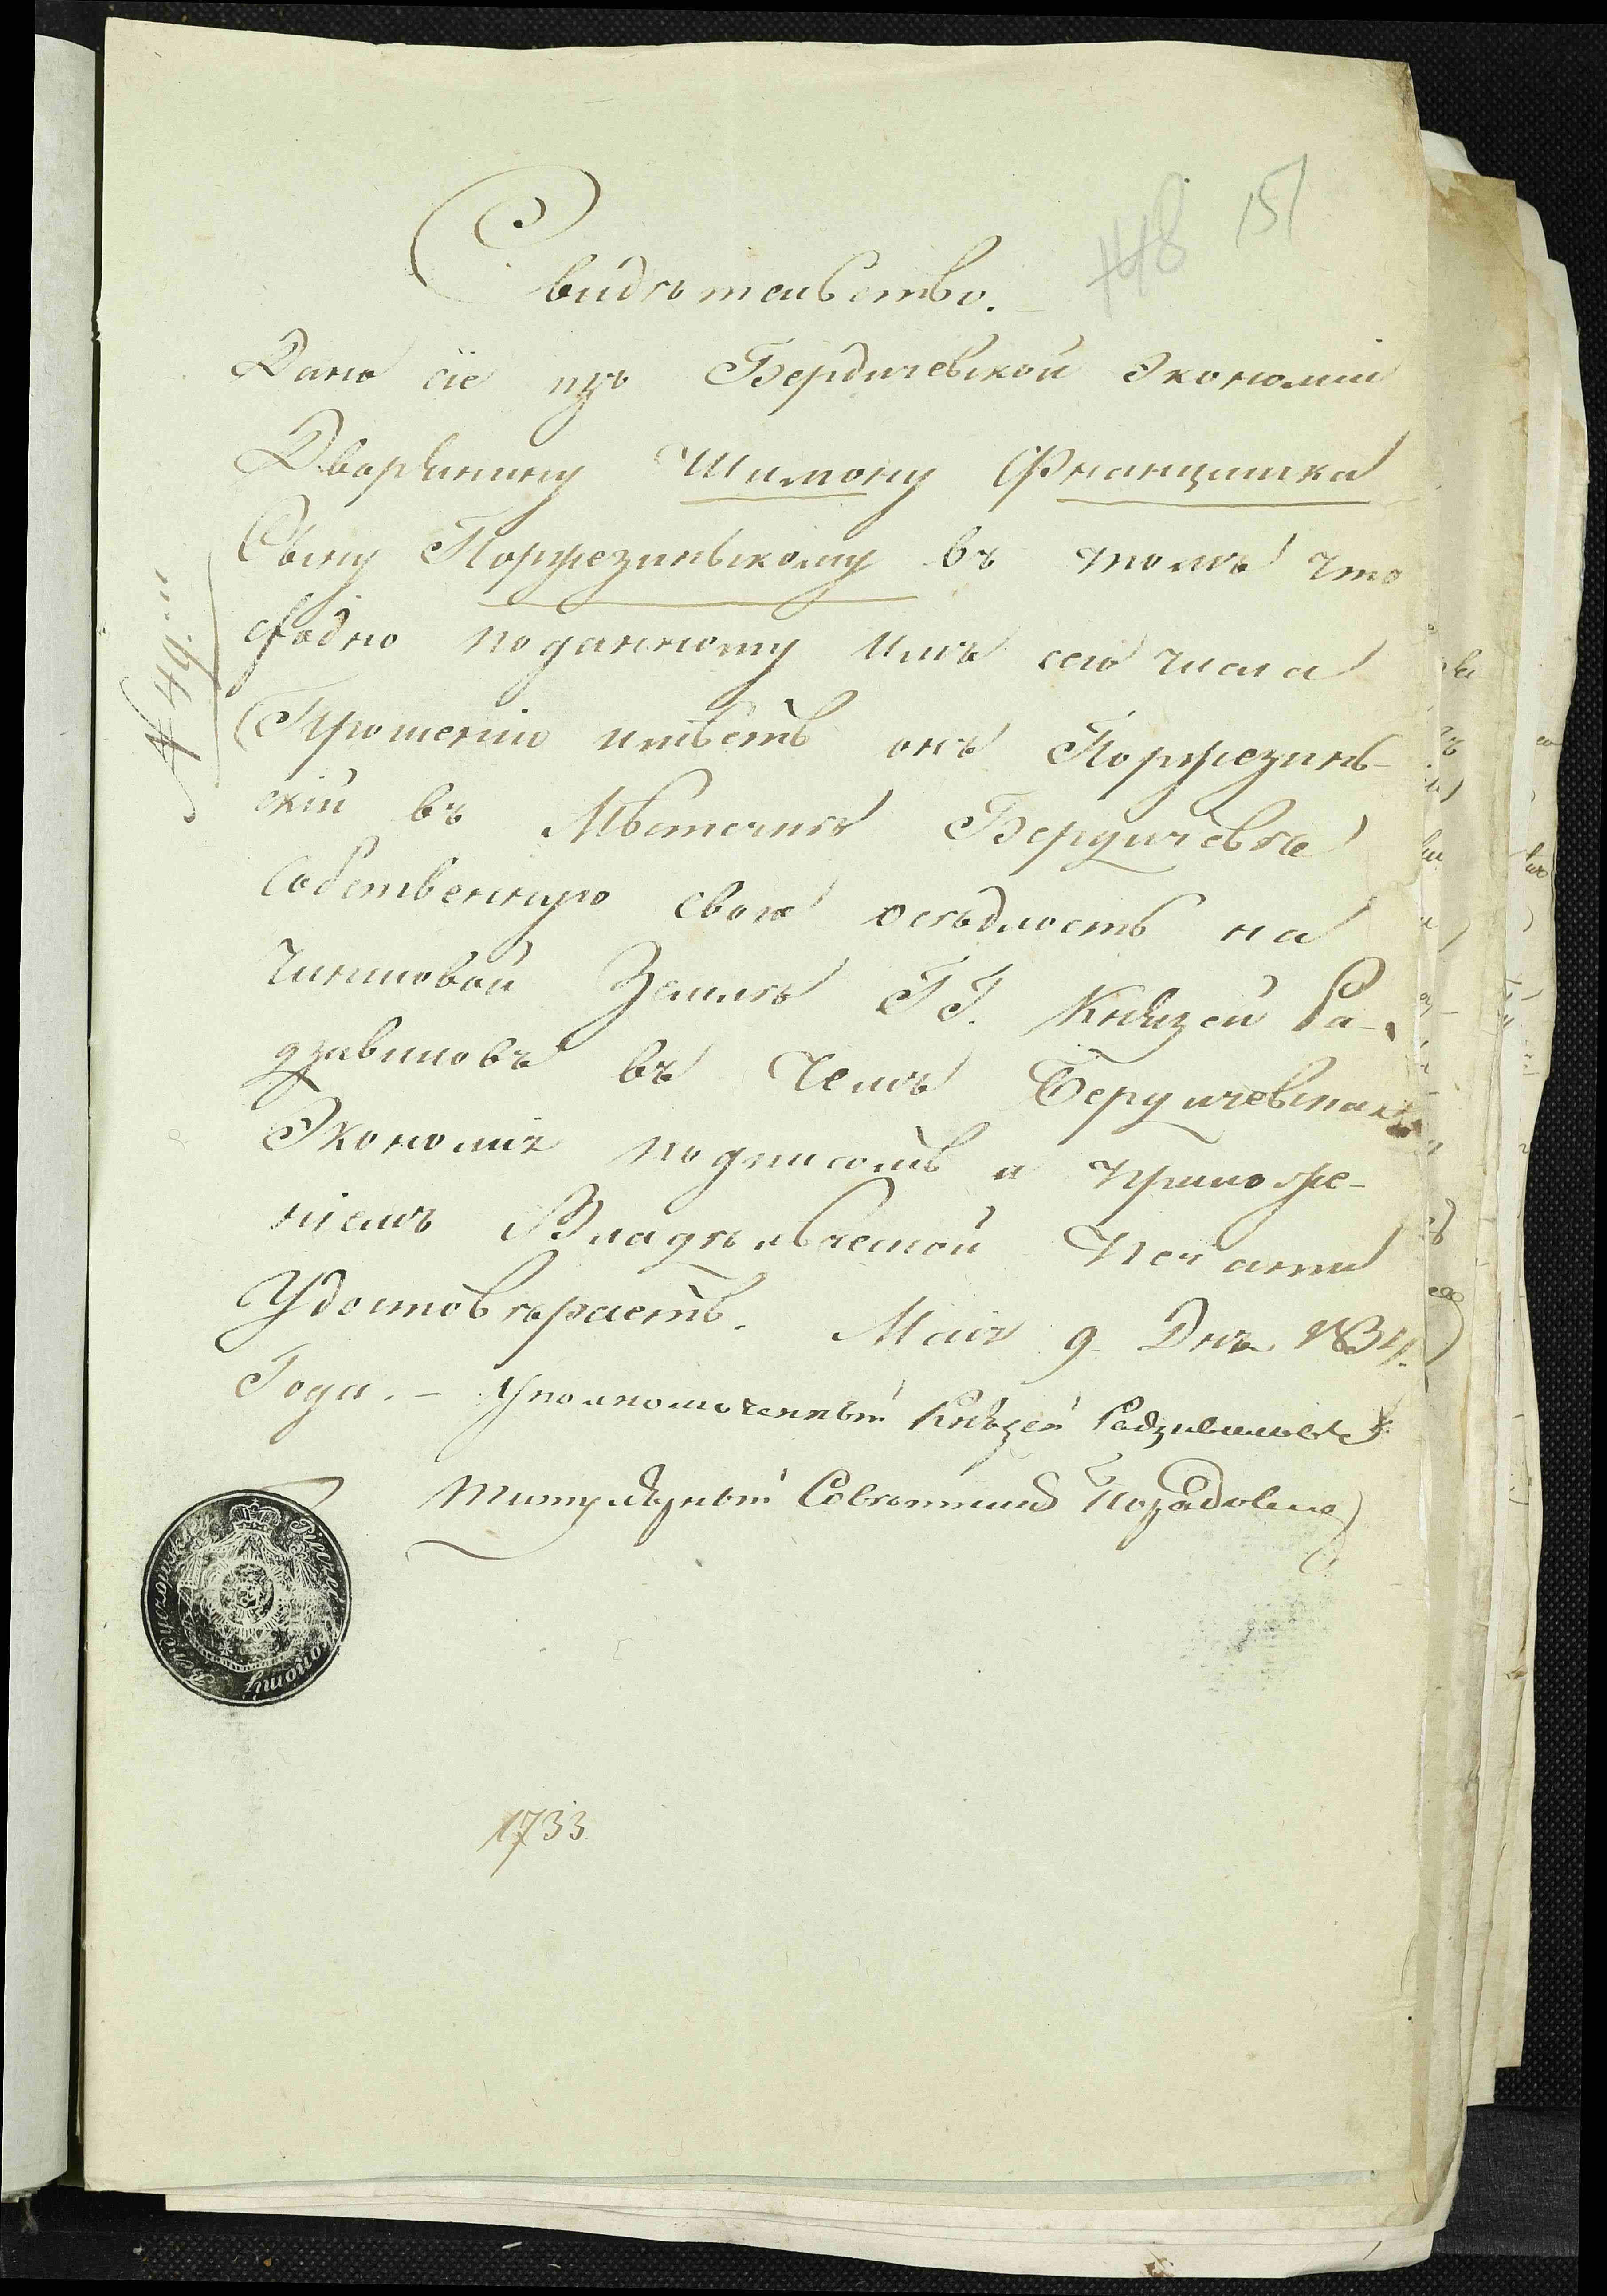 151
Свидѣтельство.
Дано сіе изъ Бердичевской Экономіи
Дворянину Шимону Францишка
Сыну Поржезинькому въ томъ что
сходно поданному имъ сего числа
Прошенію имѣетъ онъ Поржезинь-
скій въ Мѣстечкѣ Бердичевѣ
собственную свою осѣдлость на
чиншовой Землѣ ГГ. Князей Ра-
дзивиловъ въ чемъ Бердичевская
Экономія подписомъ и приложе-
ніемъ Владѣльческой Печати
Удостовѣряетъ. Маія 9 Дня 1834.
Года. — Уполномоченный Князей Радзивиловъ
Титулярный Совѣтникъ
№ 449
1733.